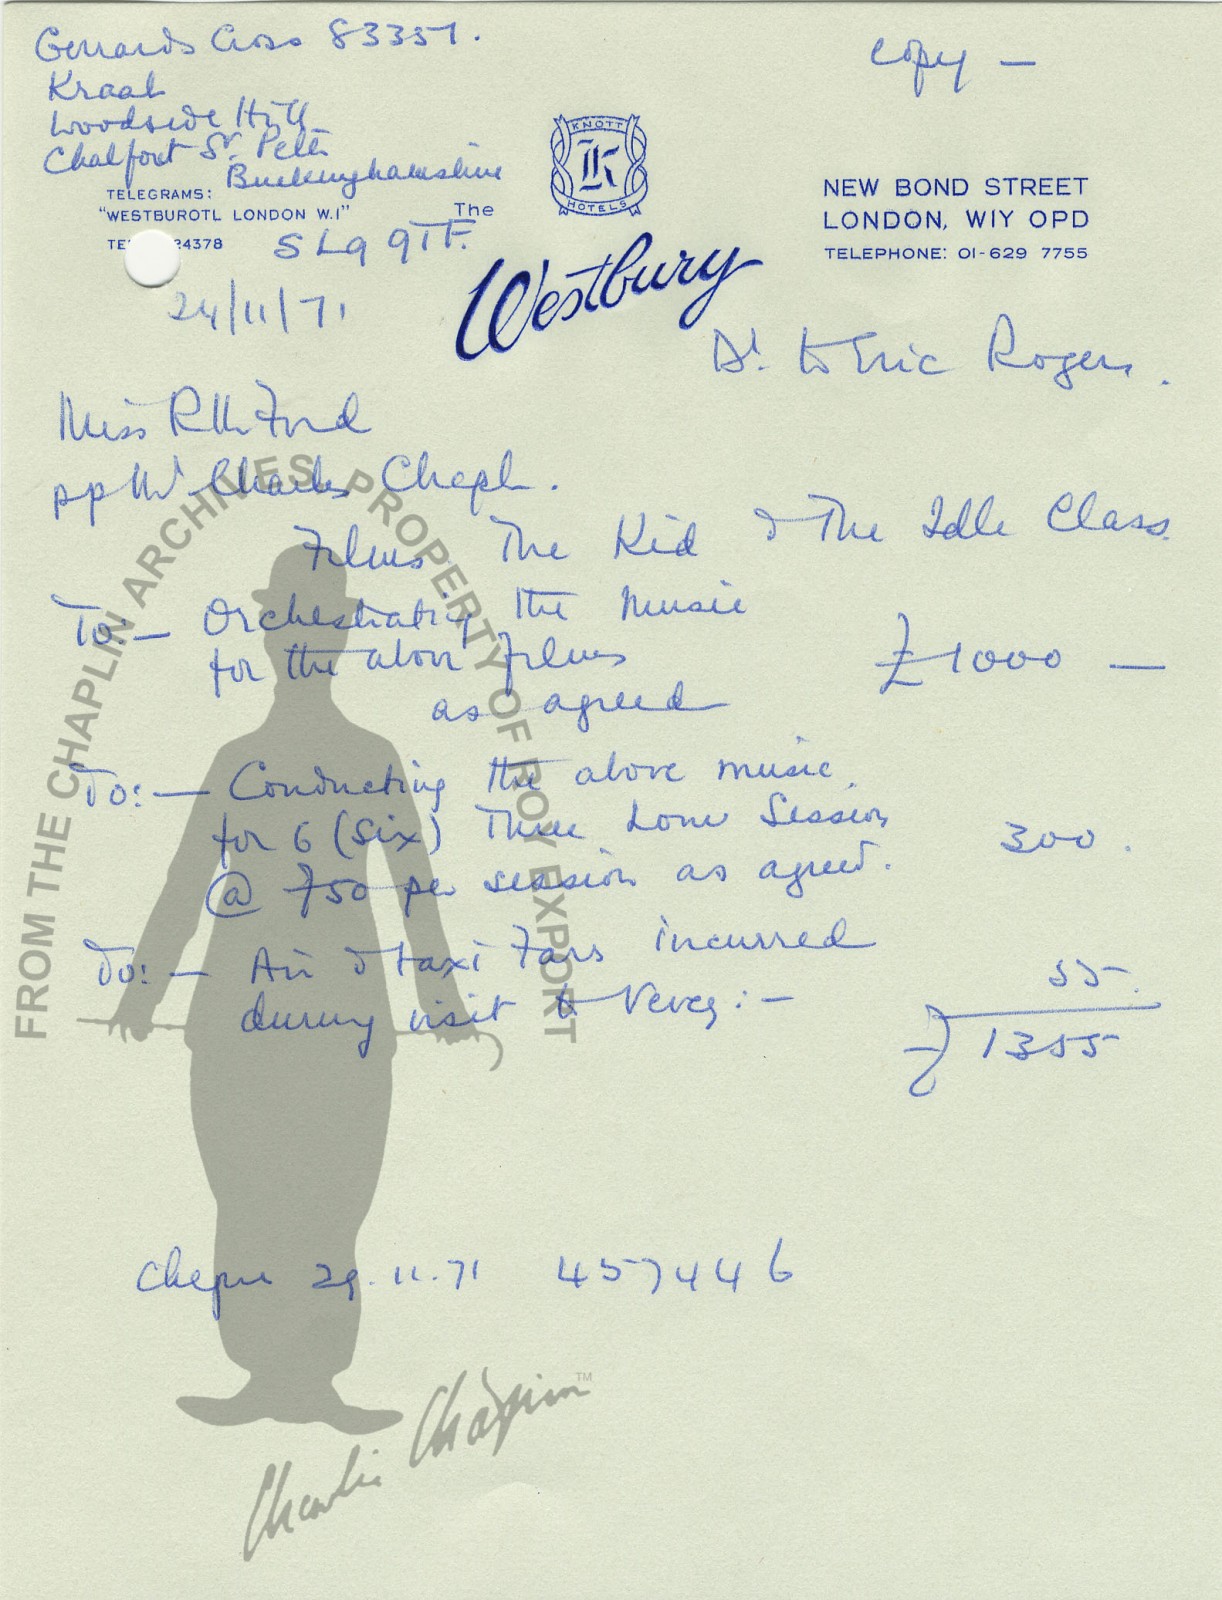 Gerrards Cross 83357.
copy —
Kraal
Woodside Hill
Chalfont St. Peter
Buckinghamshire
KNOTT
K
HOTELS
TELEGRAMS:
"WESTBUROTL LONDON W.I"
TE 24378
SL9 9TF.
The
Westbury
NEW BOND STREET
LONDON, W1Y OPD
TELEPHONE: 01-629 7755
24/11/71
Dr. to Eric Rogers.
Miss Ruth Ford
pp Mr Charles Chapl.
Films The Kid & The Idle Class.
To:— Orchestrating the music
for the above films
as agreed
£1000 —
To:— Conducting the above music
for 6 (six) Three hour Session
@ £50 per session as agreed.
300.
To:— Air & taxi fars incurred
during visit to Vevey:—
55.
£1355
Cheque 29.11.71 457446
FROM THE CHAPLIN ARCHIVES, PROPERTY OF ROY EXPORT
Charlie Chaplin™